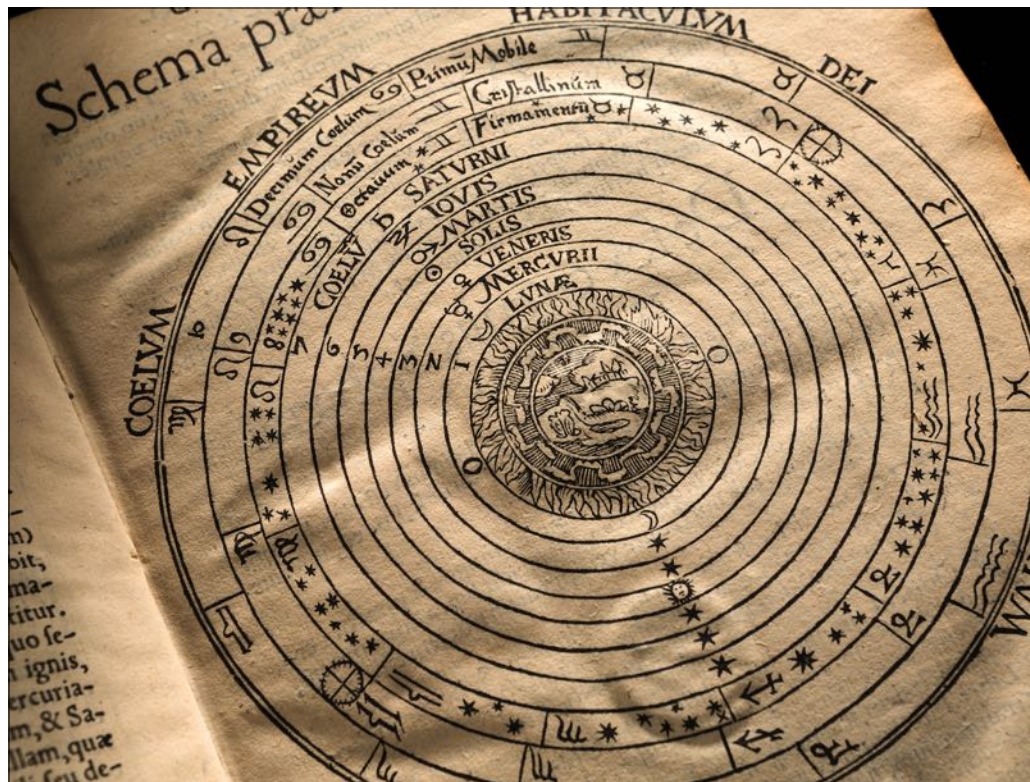 Schema præ
COELVM EMPIREVM HABITACVLVM DEI
Decimũm Coelum Primũ Mobile
Nonũ Coelum Cristallinũm
Octauum Firmamentũ
COELṼ
SATVRNI
IOVIS
MARTIS
SOLIS
VENERIS
MERCVRII
LVNÆ
10 9 8 7 6 5 4 3 2 1
m)
bit,
ma-
titur.
quo fe-
ignis,
ercuria-
m, & Sa-
llam, quæ